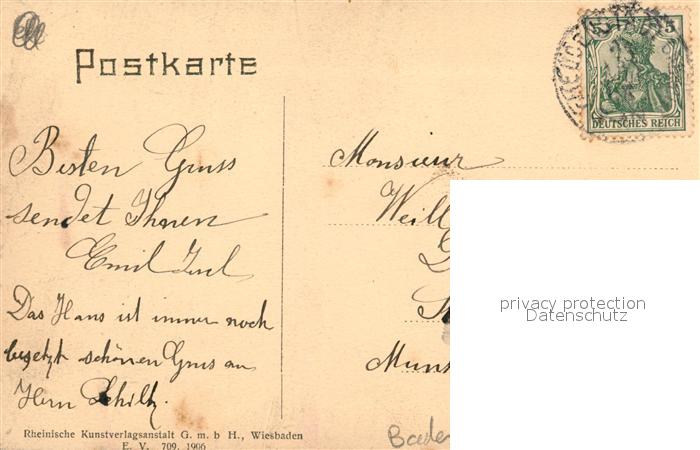 Postkarte
5
DEUTSCHES REICH
Besten Gruss
sendet Ihnen
Emil
Das Haus ist immer noch
besetzt schönen Gruss an
Herrn
Monsieur
Weill
privacy protection
Datenschutz
Rheinische Kunstverlagsanstalt G. m. b H., Wiesbaden
E. V. 709. 1906